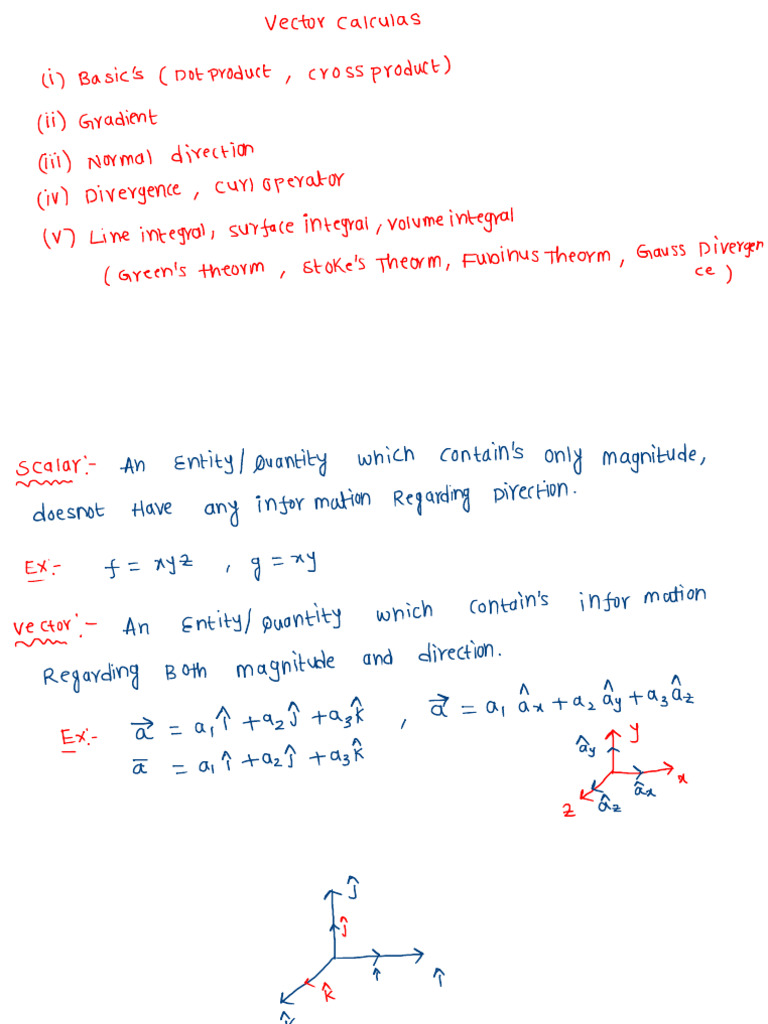 Vector calculas
(i) Basic's (Dot product , cross product)
(ii) Gradient
(iii) Normal direction
(iv) Divergence , curl operator
(v) Line integral, surface integral, volume integral
(Green's theorm , Stoke's Theorm, Fubinus Theorm , Gauss Divergen
ce )
Scalar:- An Entity/Quantity which contain's only magnitude,
doesnot Have any infor mation Regarding Direction.
Ex:- f = xyz , g = xy
Vector:- An Entity/Quantity which contain's infor mation
Regarding Both magnitude and direction.
Ex:- a⃗ = a₁î + a₂ĵ + a₃k̂ , a⃗ = a₁ âx + a₂ ây + a₃ âz
a̅ = a₁î + a₂ĵ + a₃k̂
y
ây
x
âx
z
âz
ĵ
ĵ
î
î
k̂
k̂